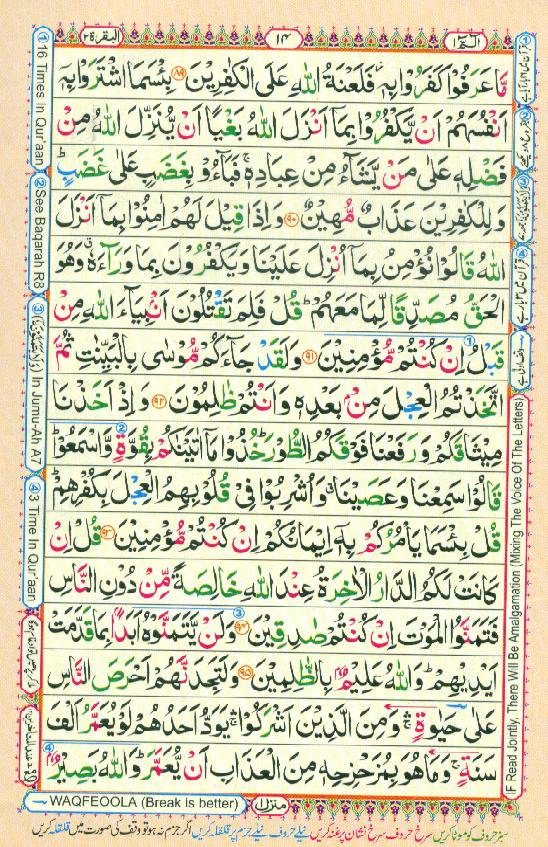 البقرة ٢
١٤
الٓمّٓ ١
مَّا عَرَفُوْا كَفَرُوْا بِهٖ٘ فَلَعْنَةُ اللّٰهِ عَلَى الْكٰفِرِيْنَ ۝٨٩ بِئْسَمَا اشْتَرَوْا بِهٖۤ
اَنْفُسَهُمْ اَنْ يَّكْفُرُوْا بِمَاۤ اَنْزَلَ اللّٰهُ بَغْيًا اَنْ يُّنَزِّلَ اللّٰهُ مِنْ
فَضْلِهٖ عَلٰى مَنْ يَّشَآءُ مِنْ عِبَادِهٖ١ۚ فَبَآءُوْ بِغَضَبٍ عَلٰى غَضَبٍ١ؕ
وَ لِلْكٰفِرِيْنَ عَذَابٌ مُّهِيْنٌ ۝٩٠ وَ اِذَا قِيْلَ لَهُمْ اٰمِنُوْا بِمَاۤ اَنْزَلَ
اللّٰهُ قَالُوْا نُؤْمِنُ بِمَاۤ اُنْزِلَ عَلَيْنَا وَ يَكْفُرُوْنَ بِمَا وَرَآءَهٗ١ۗ وَ هُوَ
الْحَقُّ مُصَدِّقًا لِّمَا مَعَهُمْ١ؕ قُلْ فَلِمَ تَقْتُلُوْنَ اَنْۢبِيَآءَ اللّٰهِ مِنْ
قَبْلُ اِنْ كُنْتُمْ مُّؤْمِنِيْنَ ۝٩١ وَ لَقَدْ جَآءَكُمْ مُّوْسٰى بِالْبَيِّنٰتِ ثُمَّ
اتَّخَذْتُمُ الْعِجْلَ مِنْۢ بَعْدِهٖ وَ اَنْتُمْ ظٰلِمُوْنَ ۝٩٢ وَ اِذْ اَخَذْنَا
مِيْثَاقَكُمْ وَ رَفَعْنَا فَوْقَكُمُ الطُّوْرَ١ؕ خُذُوْا مَاۤ اٰتَيْنٰكُمْ بِقُوَّةٍ وَّ اسْمَعُوْا١ؕ
قَالُوْا سَمِعْنَا وَ عَصَيْنَا١ۗ وَ اُشْرِبُوْا فِيْ قُلُوْبِهِمُ الْعِجْلَ بِكُفْرِهِمْ١ؕ
قُلْ بِئْسَمَا يَاْمُرُكُمْ بِهٖۤ اِيْمَانُكُمْ اِنْ كُنْتُمْ مُّؤْمِنِيْنَ ۝٩٣ قُلْ اِنْ
كَانَتْ لَكُمُ الدَّارُ الْاٰخِرَةُ عِنْدَ اللّٰهِ خَالِصَةً مِّنْ دُوْنِ النَّاسِ
فَتَمَنَّوُا الْمَوْتَ اِنْ كُنْتُمْ صٰدِقِيْنَ ۝٩٤ وَ لَنْ يَّتَمَنَّوْهُ اَبَدًۢا بِمَا قَدَّمَتْ
اَيْدِيْهِمْ١ؕ وَ اللّٰهُ عَلِيْمٌۢ بِالظّٰلِمِيْنَ ۝٩٥ وَ لَتَجِدَنَّهُمْ اَحْرَصَ النَّاسِ
عَلٰى حَيٰوةٍ١ۛۚ وَ مِنَ الَّذِيْنَ اَشْرَكُوْا١ۛۚ يَوَدُّ اَحَدُهُمْ لَوْ يُعَمَّرُ اَلْفَ
سَنَةٍ١ۚ وَ مَا هُوَ بِمُزَحْزِحِهٖ مِنَ الْعَذَابِ اَنْ يُّعَمَّرَ١ؕ وَ اللّٰهُ بَصِيْرٌۢ
① 16 Times In Qur'aan
② See Baqarah R8
③ In Jumu-Ah A7
④ 3 Time In Qur'aan
IF Read Jointly, There Will Be Amalgamation (Mixing The Voice Of The Letters)
WAQFEOOLA (Break is better)
منزل ١
سبز حروف کو موٹا کریں سرخ حروف سرخ نشان پر غنہ کریں نیلے حروف نیلے جزم پر قلقلہ کریں اگر جزم نہ ہو تو وقف کی صورت میں قلقلہ کریں